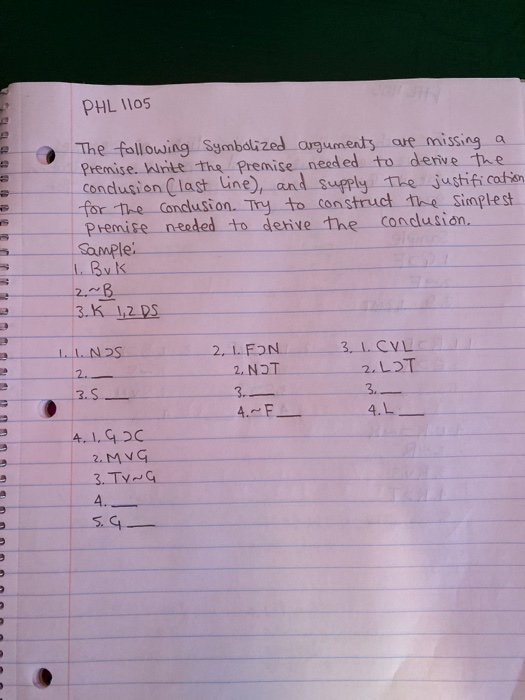 PHL 1105
The following Symbolized arguments are missing a
Premise. Write the Premise needed to derive the
conclusion (last line), and supply the justification
for the conclusion. Try to construct the simplest
premise needed to derive the conclusion.
Sample:
1. BvK
2. ~B
3. K 1,2 DS
1. 1. N⊃S
2. __
3. S __
2. 1. F⊃N
2. N⊃T
3. __
4. ~F __
3. 1. CVL
2. L⊃T
3. __
4. L __
4. 1. G⊃C
2. MVG
3. TV~G
4. __
5. G __